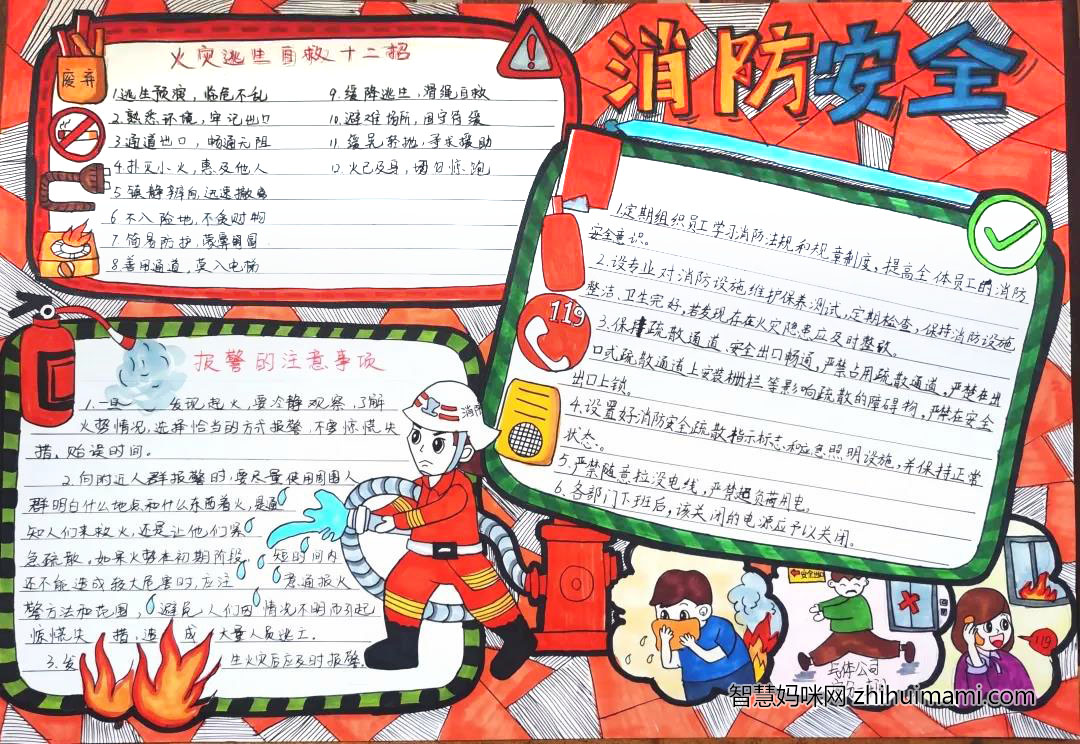 消防安全
废弃
火灾逃生自救十二招
1.逃生预演，临危不乱
2.熟悉环境，牢记出口
3.通道出口，畅通无阻
4.扑灭小火，惠及他人
5.镇静辨向，迅速撤离
6.不入险地，不贪财物
7.简易防护，蒙鼻匍匐
8.善用通道，莫入电梯
9.缓降逃生，滑绳自救
10.避难场所，固守待援
11.缓晃轻抛，寻求援助
12.火已及身，切勿惊跑
1.定期组织员工学习消防法规和规章制度，提高全体员工的消防
安全意识。
2.设专业对消防设施维护保养测试，定期检查，保持消防设施
整洁、卫生完好，若发现存在火灾隐患应及时整改。
3.保持疏散通道、安全出口畅通，严禁占用疏散通道，严禁在出
口或疏散通道上安装栅栏等影响疏散的障碍物，严禁在安全
出口上锁。
4.设置好消防安全疏散指示标志和应急照明设施，并保持正常
状态。
5.严禁随意拉设电线，严禁超负荷用电。
6.各部门下班后，该关闭的电源应予以关闭。
119
报警的注意事项
1.一旦发现起火，要冷静观察，了解
火势情况，选择恰当的方式报警，不要惊慌失
措，贻误时间。
2.向附近人群报警时，要尽量使用周围人
群明白什么地点和什么东西着火，是通
知人们来救火，还是让他们紧
急疏散。如果火势在初期阶段，短时间内
还不能造成较大危害时，应注意通报火
警方法和范围，避免人们因情况不明而引起
惊慌失措，造成大量人员逃生。
3.发生火灾后应及时报警。
消防
安全出口
119
智慧妈咪网 zhihuimami.com